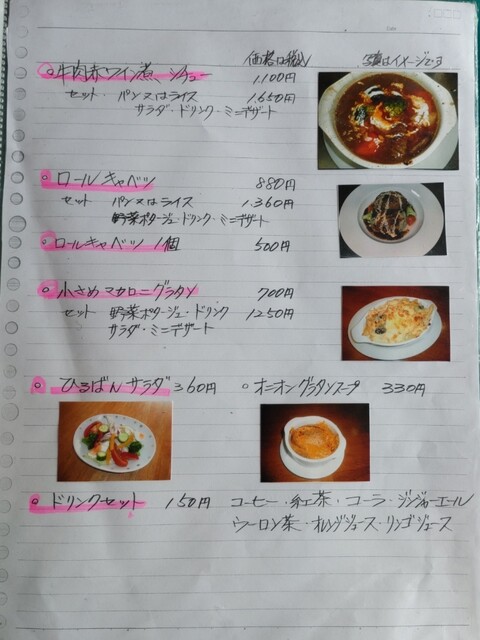 価格は税込 写真はイメージです
○牛肉赤ワイン煮、シチュー 1,100円
セット・パン又はライス 1,650円
サラダ・ドリンク・ミニデザート
○ロールキャベツ 880円
セット パン又はライス 1,360円
野菜ポタージュ・ドリンク・ミニデザート
○ロールキャベツ 1個 500円
○小さめマカロニグラタン 700円
セット 野菜ポタージュ・ドリンク 1250円
サラダ・ミニデザート
○ひるばんサラダ 360円 ○オニオングラタンスープ 330円
○ドリンクセット 150円 コーヒー・紅茶・コーラ・ジンジャーエール
ウーロン茶・オレンジジュース・リンゴジュース